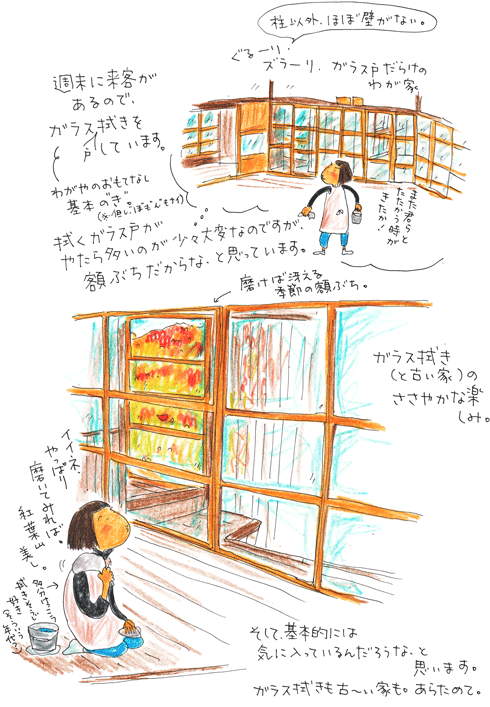 柱以外、ほぼ壁がない。
ぐるーり、
ズラーリ、ガラス戸だらけの
わが家。
週末に来客が
あるので、
ガラス拭きを
戸
しています。
わがやのおもてなし
基本の"き"。
また君らと
たたかう時が
きたか!
拭くガラス戸が
やたら多いのが少々大変なのですが、
額ぶちだからな、と思っています。
磨けば冴える
季節の額ぶち。
ガラス拭き
(と古い家)の
ささやかな楽
しみ。
イイネ、
やっぱり
磨いてみれば。
紅葉山
美し。
そして、基本的には
気に入っているんだろうな、と
思います。
ガラス拭きも古〜い家も。あらためて。